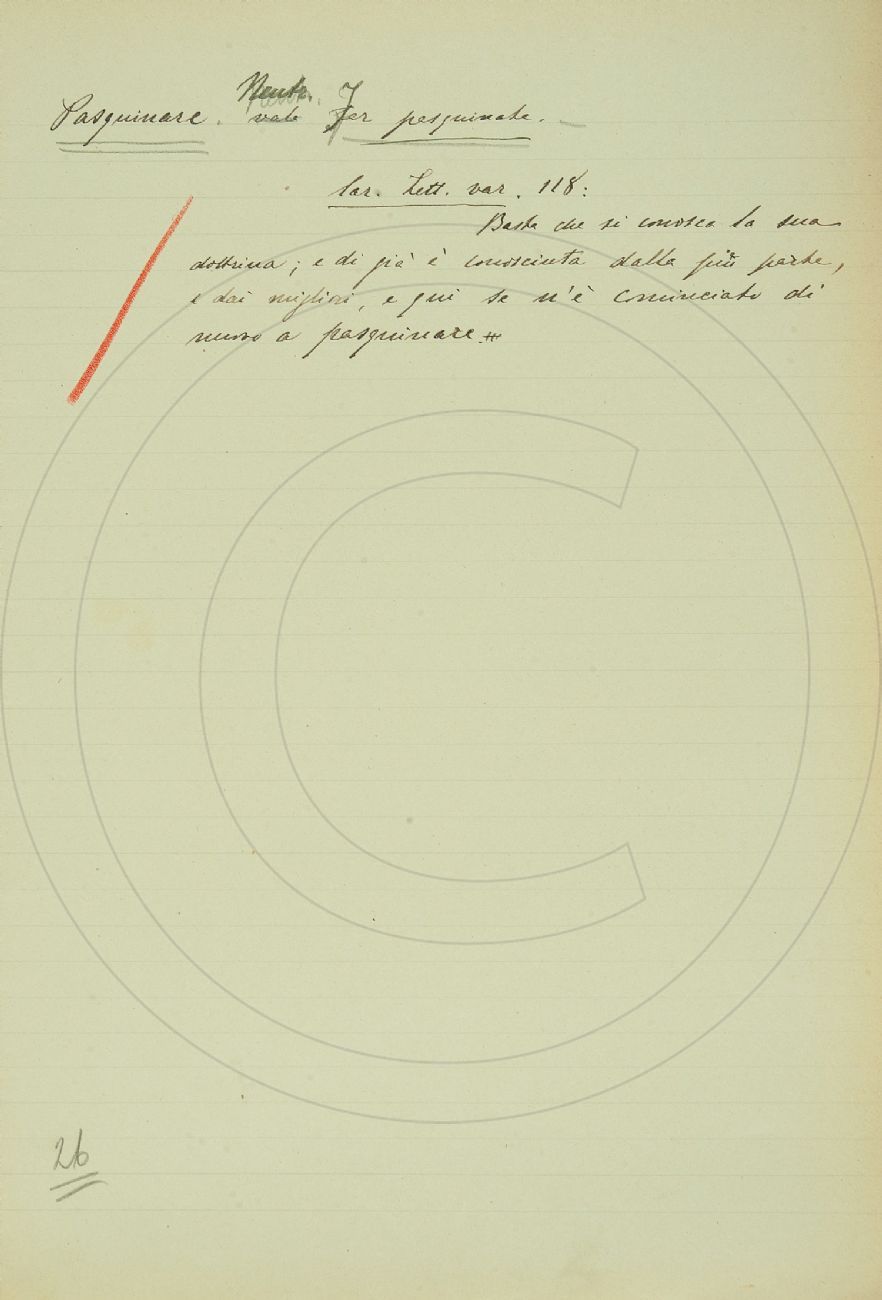 Neutr.
Pasquinare. vale Far pasquinate. —
Car. Lett. var. 118:
Basta che si conosca la sua
dottrina; e di già è conosciuta dalla più parte,
e dai migliori, e qui se n'è cominciato di
nuovo a pasquinare #
26